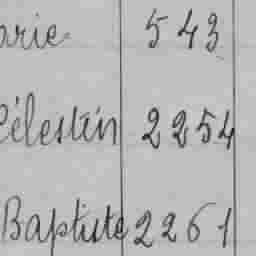 arie 543
Célestin 2254
Baptiste 2261